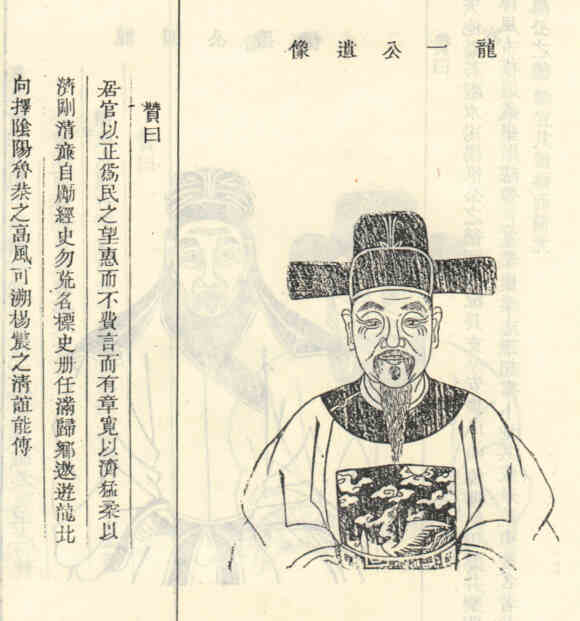 龍一公遺像
贊曰
居官以正為民之望惠而不費言而有章寬以濟猛柔以
濟剛清廉自勵經史勿荒名標史册任滿歸鄉遨遊龍北
向擇陰陽魯恭之高風可溯楊震之清誼能傳